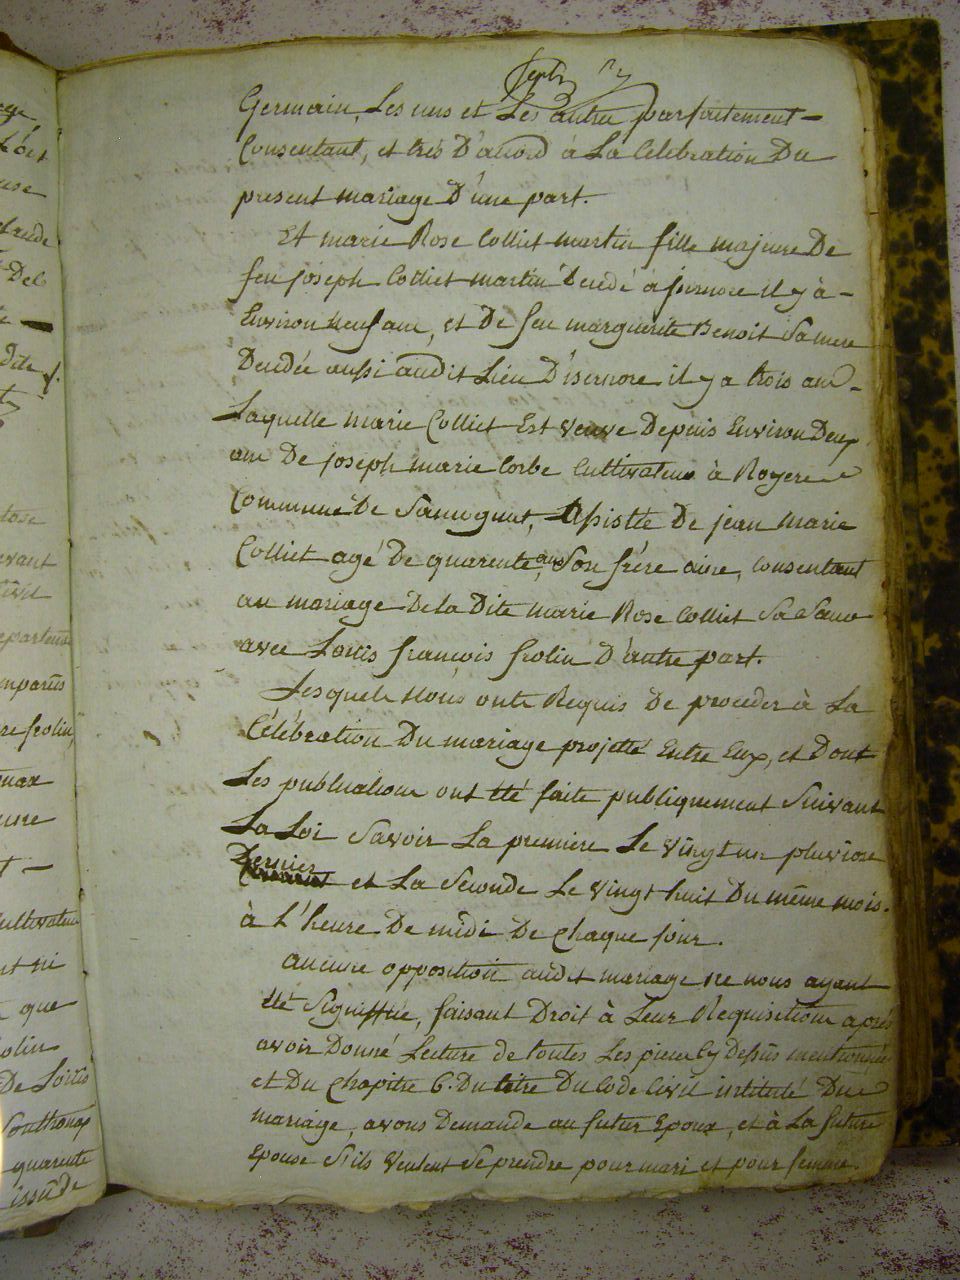 age
Loix
Dela
Dite
tose
evant
Civil
re frolin,
une
t —
cultivateur
nt ni
que
rolin
De Loüis
quarente
issû de
Sept
Germain, Les uns et Les autre parfaitement —
Consentant, et tres D'accord à La Celebration Du
present mariage D'une part.
Et marie Rose Colliet martin fille majeure De
feu joseph Colliet martin Decedé à isernore il y à —
Environ neuf ans, et De feu marguerite Benoit Sa mere
Decedée aussi audit Lieu D'isernore il y a trois ans —
Laquelle marie Colliet Est Veuve Depuis Environ Deux
ans De joseph marie Corbe Cultivateur à Royere
Commune De Samognat, Assistée De jean marie
Colliet agé De quarente ans, Son frère ainé, Consentant
au mariage De la Dite Marie Rose Colliet Sa Sœur
avec Loüis françois frolin D'autre part.
Lesquels Nous onts Requis De proceder à La
Célébration Du mariage projetté Entre Eux, et Dont
Les publications ont été faite publiquement Suivant
La Loi Savoir La premiere Le vingt un pluviose
Dernier et La Seconde Le vingt huit Du même mois.
à L'heure De midi De Chaque jour.
aucune opposition audit mariage ne nous ayant
été Signiffiée, faisant Droit à Leur Requisition après
avoir Donné Lecture de toutes Les pieces Cy Dessus mentionnée
et Du Chapitre 6. Du titre Du Code Civil intitulé Du
mariage, avons Demandé au futur Epoux, et à La future
Epouse S'ils veulent Se prendre pour mari et pour femme.